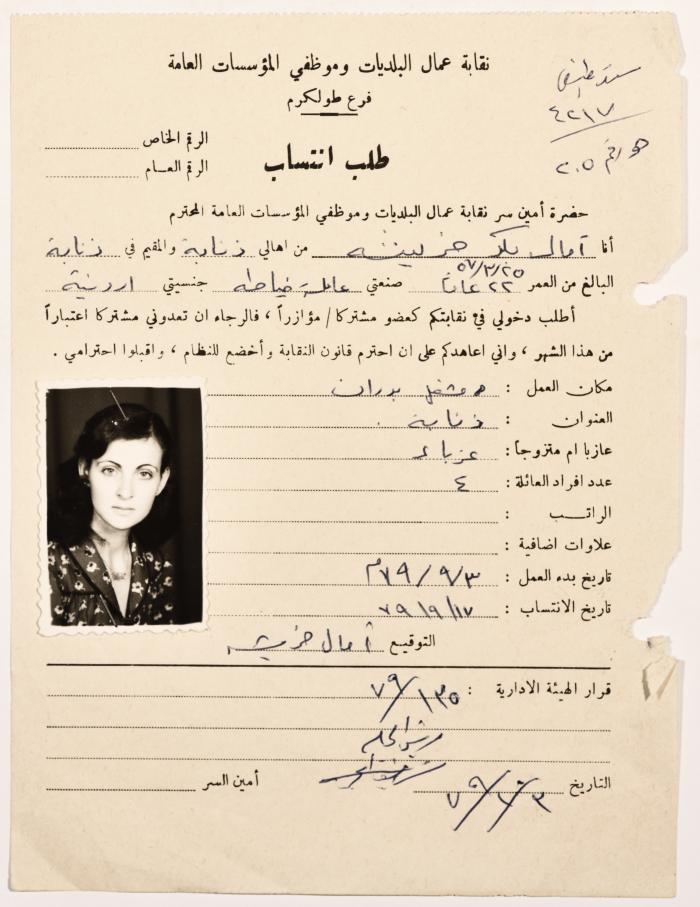 نقابة عمال البلديات وموظفي المؤسسات العامة
فرع طولكرم
٤٢١٧
هو رقم ٢٠٥
الرقم الخاص
الرقم العام
طلب انتساب
حضرة أمين سر نقابة عمال البلديات وموظفي المؤسسات العامة المحترم
أنا آمال من اهالي ذنابة والمقيم في ذنابة
٥٧/٣/٢٥
البالغ من العمر ٢٢ عاماً صنعتي عاملة خياطه جنسيتي اردنية
أطلب دخولي في نقابتكم كعضو مشتركا / مؤازراً ، فالرجاء ان تعدوني مشتركا اعتباراً
من هذا الشهر ، واني اعاهدكم على ان احترم قانون النقابة وأخضع للنظام ، واقبلوا احترامي .
مكان العمل : مشغل بدران
العنوان : ذنابة
عازبا ام متزوجاً : عزباء
عدد افراد العائلة : ٤
الراتب :
علاوات اضافية :
تاريخ بدء العمل : ٧٩/٩/٣م
تاريخ الانتساب : ٧٩/٩/١٧
التوقيع آمال
قرار الهيئة الادارية : ٧٩/١٣٥
التاريخ أمين السر